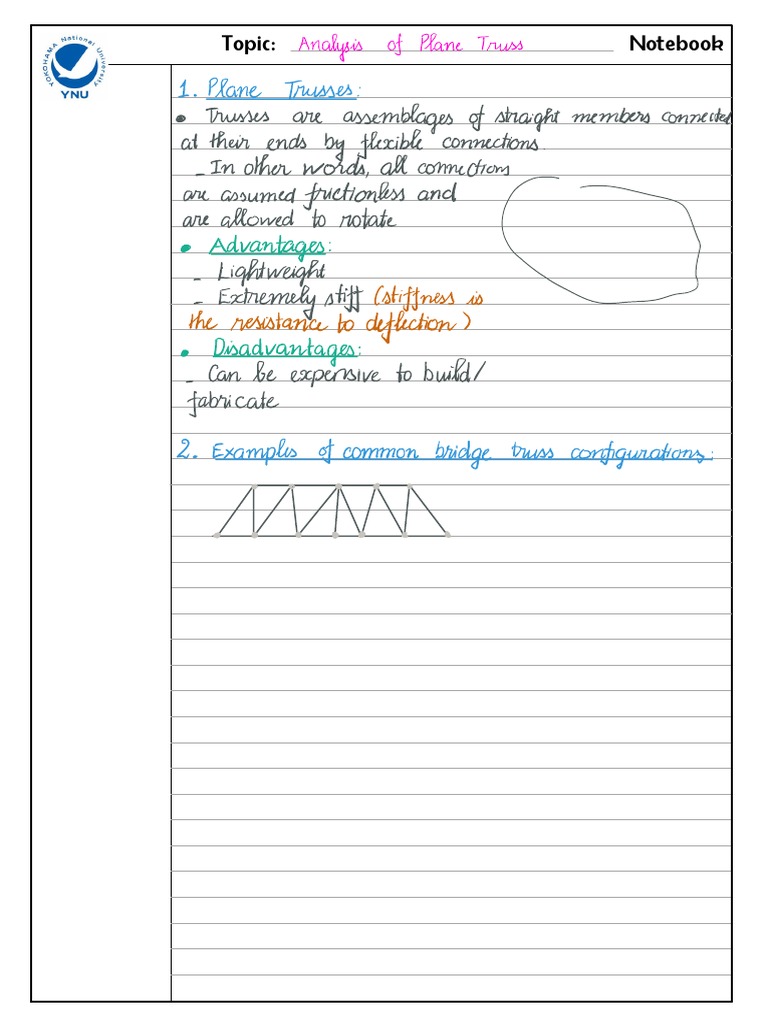 YOKOHAMA National University
YNU
Topic: Analysis of Plane Truss Notebook
1. Plane Trusses:
• Trusses are assemblages of straight members connected
at their ends by flexible connections.
- In other words, all connections
are assumed frictionless and
are allowed to rotate
• Advantages:
- Lightweight
- Extremely stiff (stiffness is
the resistance to deflection)
• Disadvantages:
- Can be expensive to build/
fabricate
2. Examples of common bridge truss configurations: